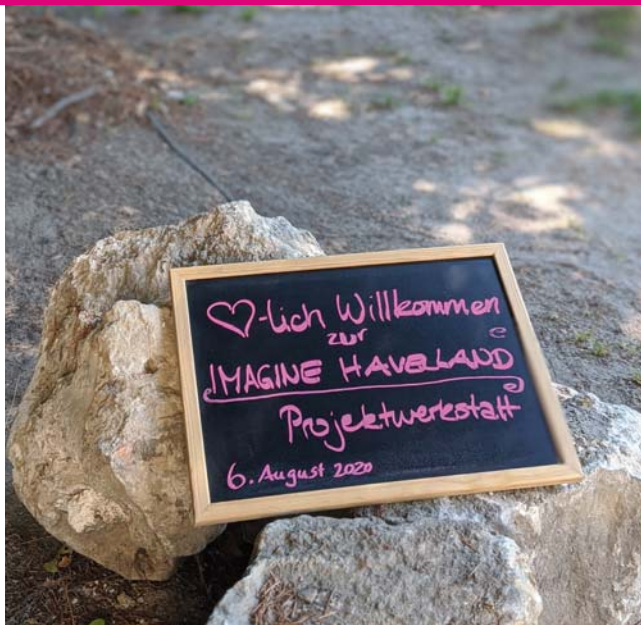 ♡-lich Willkommen
zur
IMAGINE HAVELLAND
Projektwerkstatt
6. August 2020